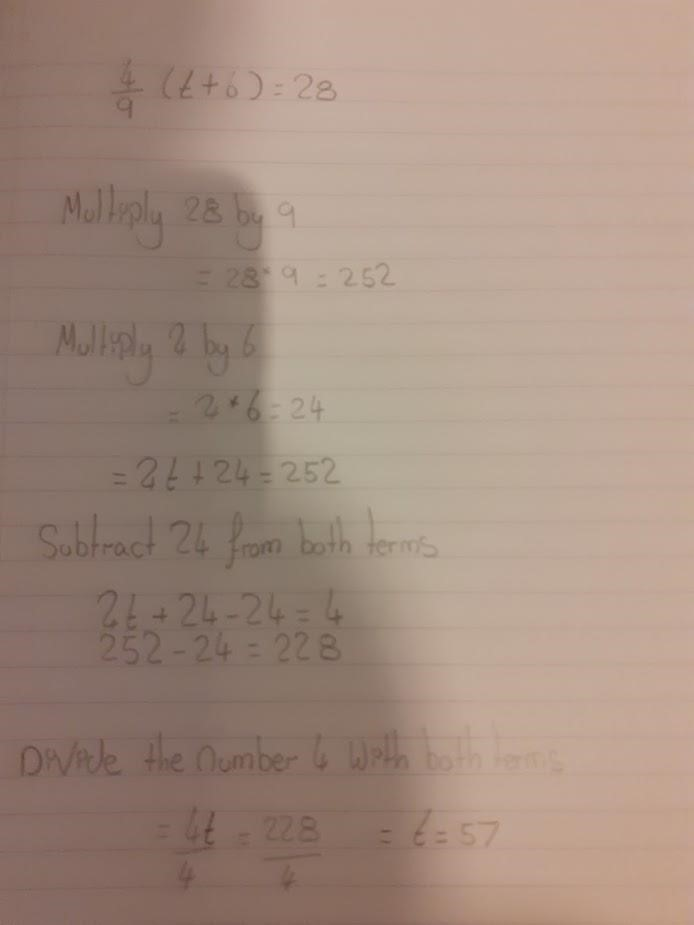 4/9 (t+6) = 28
Multiply 28 by 9
= 28*9 = 252
Multiply 2 by 6
= 2*6 = 24
= 2t + 24 = 252
Subtract 24 from both terms
2t + 24 - 24 = 4
252 - 24 = 228
Divide the number 4 with both terms
= 4t/4 = 228/4 = t = 57